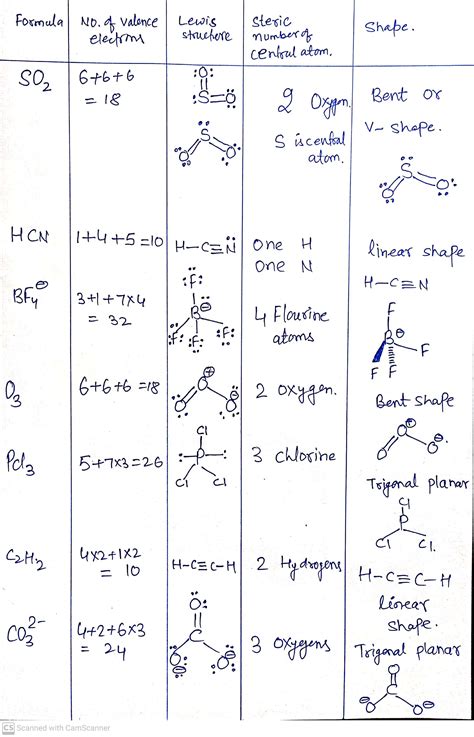 Formula No. of valence electrons Lewis structure Steric number of central atom. Shape.
SO2 6+6+6 = 18 :O: :S=O 2 Oxygen. Bent or V-shape.
S O O S is central atom. S O O
HCN 1+4+5=10 H-C≡N One H One N linear shape
H-C≡N
BF4⊖ 3+1+7x4 = 32 :F: B⊖ :F: :F: :F: 4 Flourine atoms F B⊖ F F F
O3 6+6+6=18 O⊕ O O⊖ 2 oxygen. Bent shape
O⊕ O O⊖
Pcl3 5+7x3=26 Cl P Cl Cl 3 chlorine Trigonal planar
Cl P Cl Cl.
C2H2 4x2+1x2 = 10 H-C≡C-H 2 Hydrogens H-C≡C-H
linear shape.
CO3 2- 4+2+6x3 = 24 O: C O⊖ O⊖ 3 oxygens Trigonal planar
O C O⊖ O⊖
CS Scanned with CamScanner